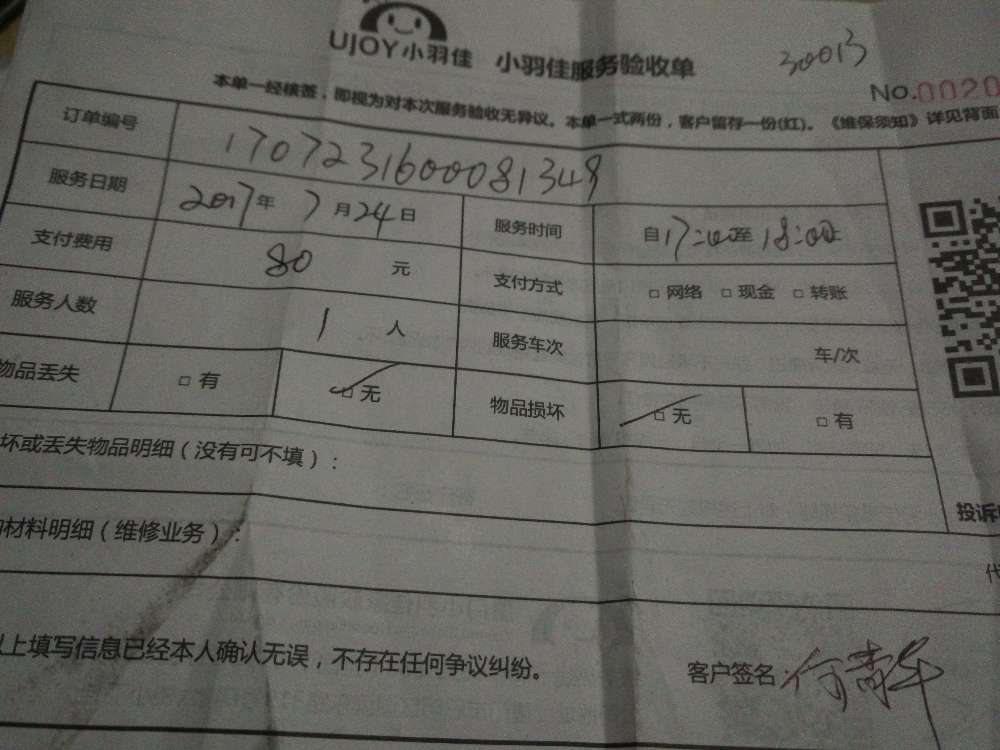 UJOY小羽佳 小羽佳服务验收单 30013
No.0020
本单一经核签，即视为对本次服务验收无异议。本单一式两份，客户留存一份(红)。《维保须知》详见背面
订单编号 1707231600081348
服务日期 2017年 7月24日 服务时间 自17:00至18:00止
支付费用 80 元 支付方式 □ 网络 □ 现金 □ 转账
服务人数 1 人 服务车次 车/次
物品丢失 □ 有 ✓□ 无 物品损坏 □ 无 □ 有
坏或丢失物品明细（没有可不填）：
材料明细（维修业务）： 投诉
代
以上填写信息已经本人确认无误，不存在任何争议纠纷。 客户签名：何